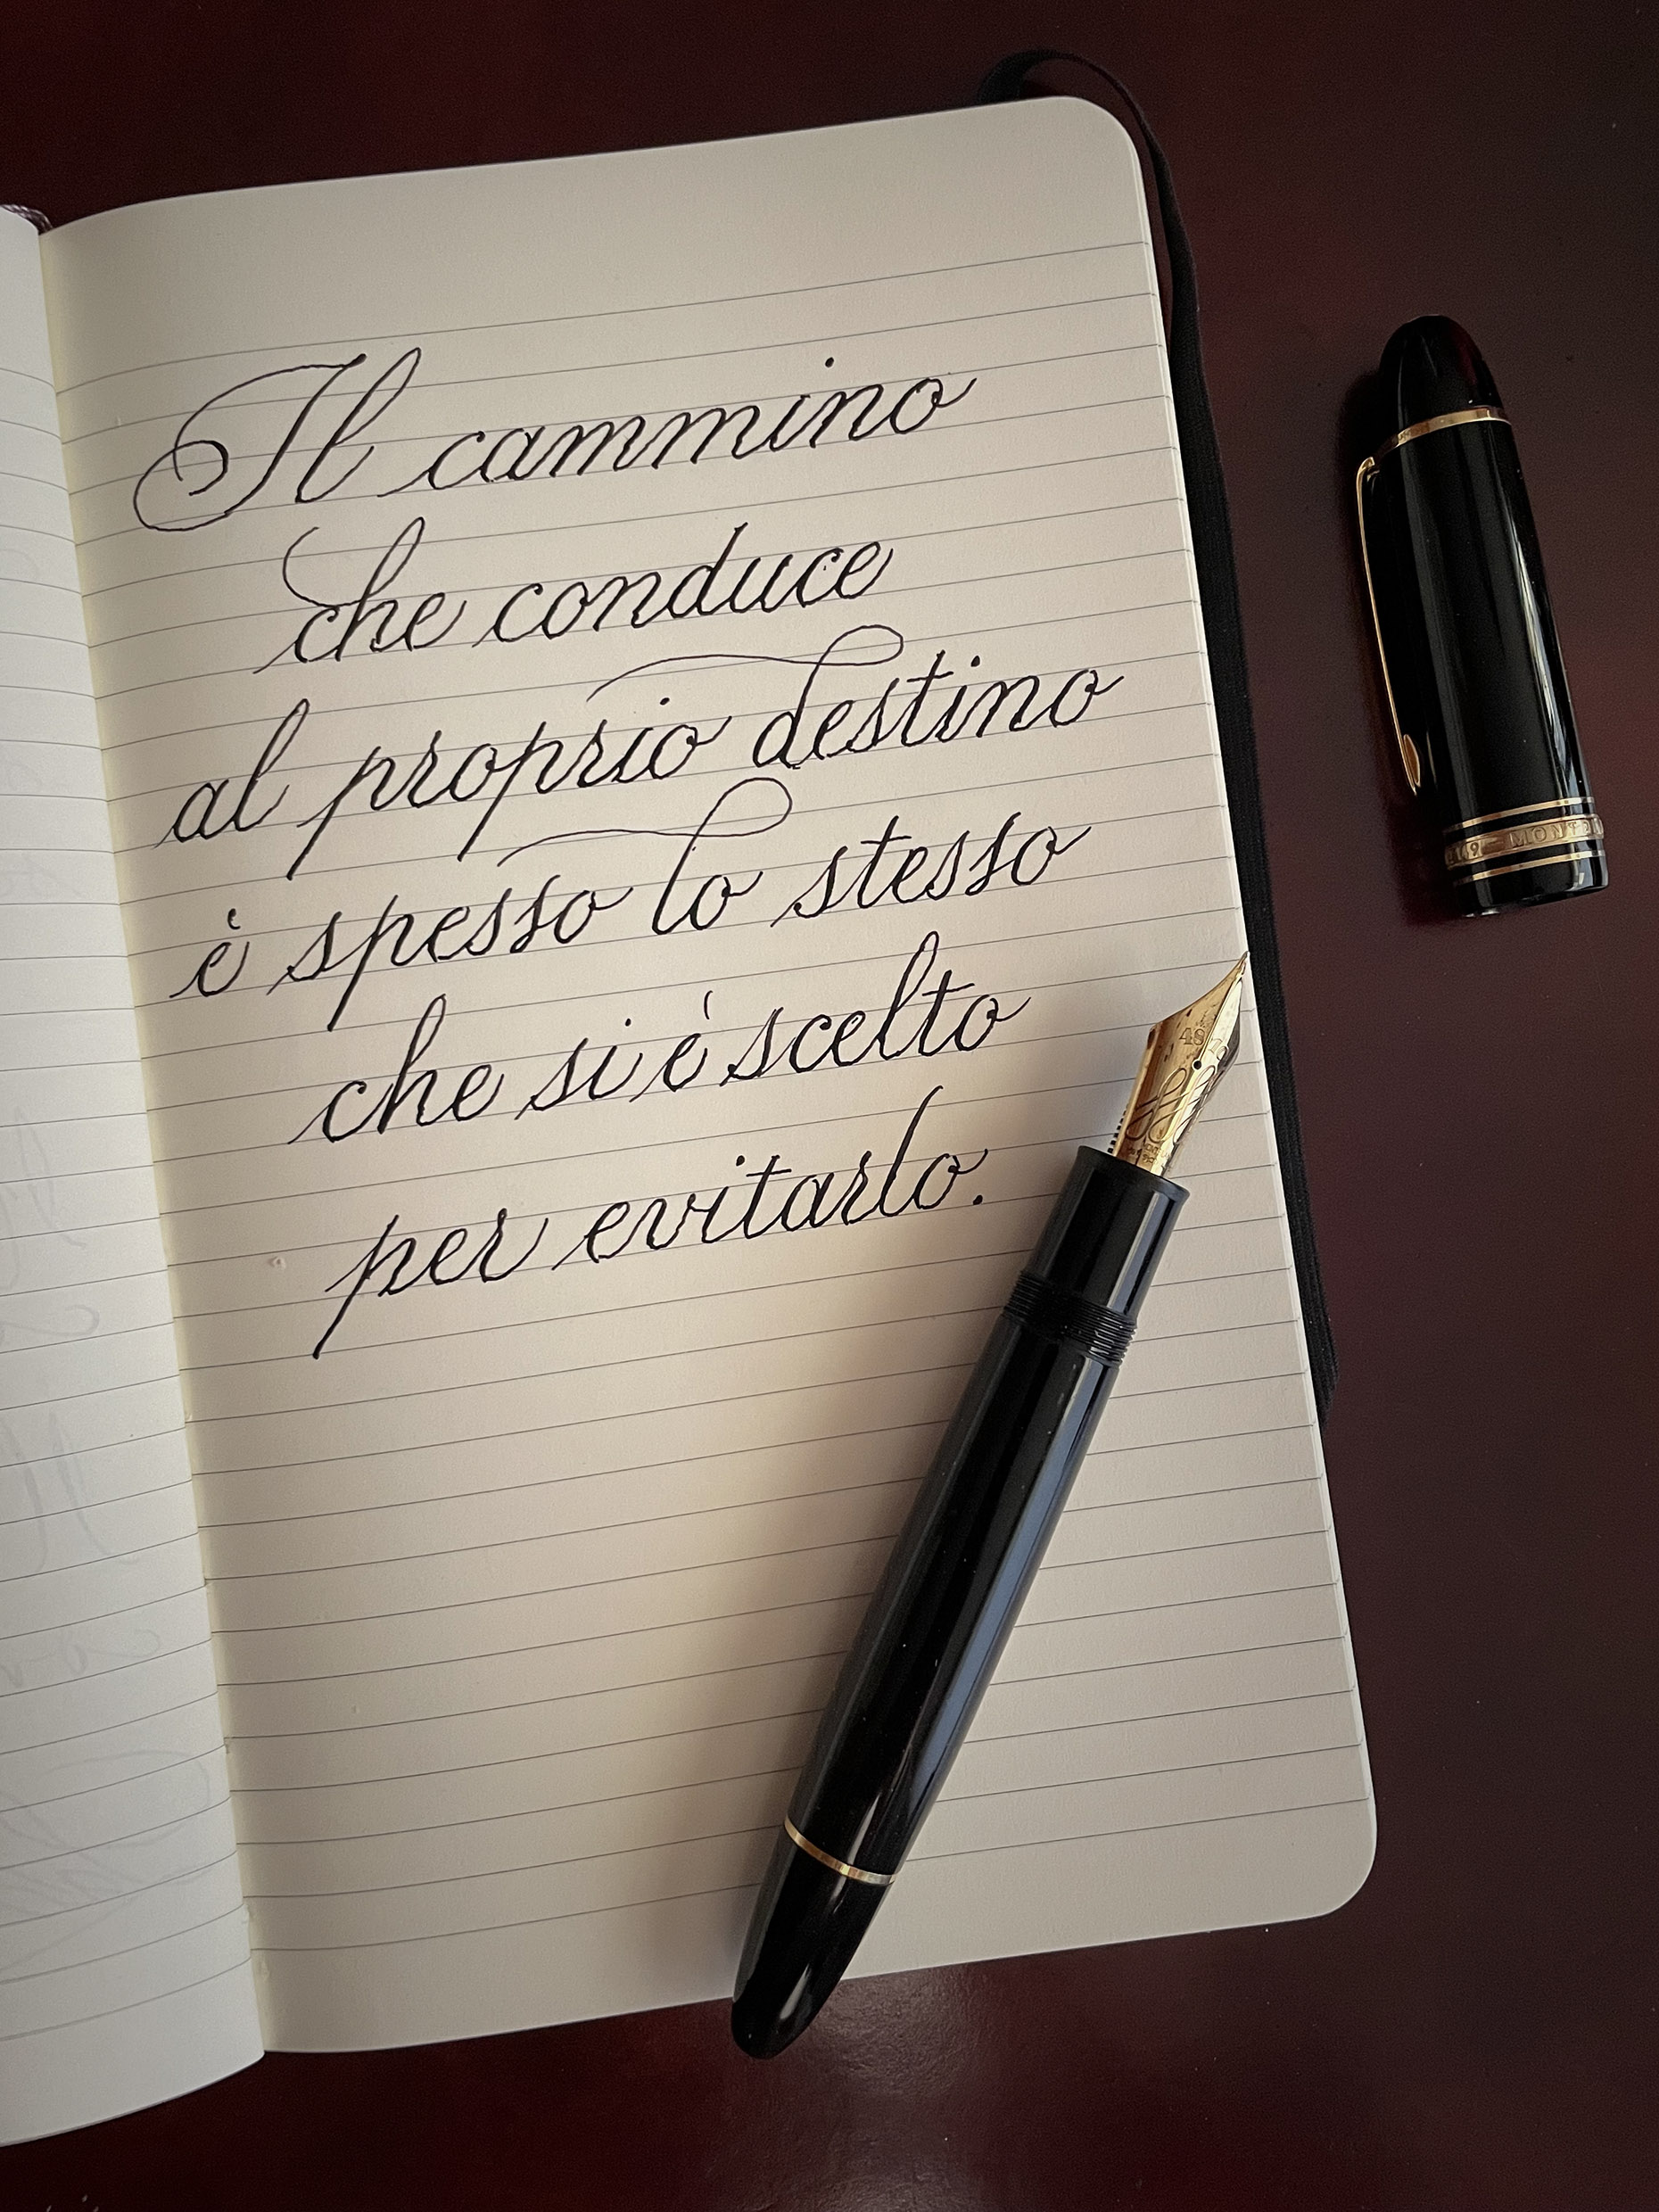 Il cammino
che conduce
al proprio destino
è spesso lo stesso
che si è scelto
per evitarlo.